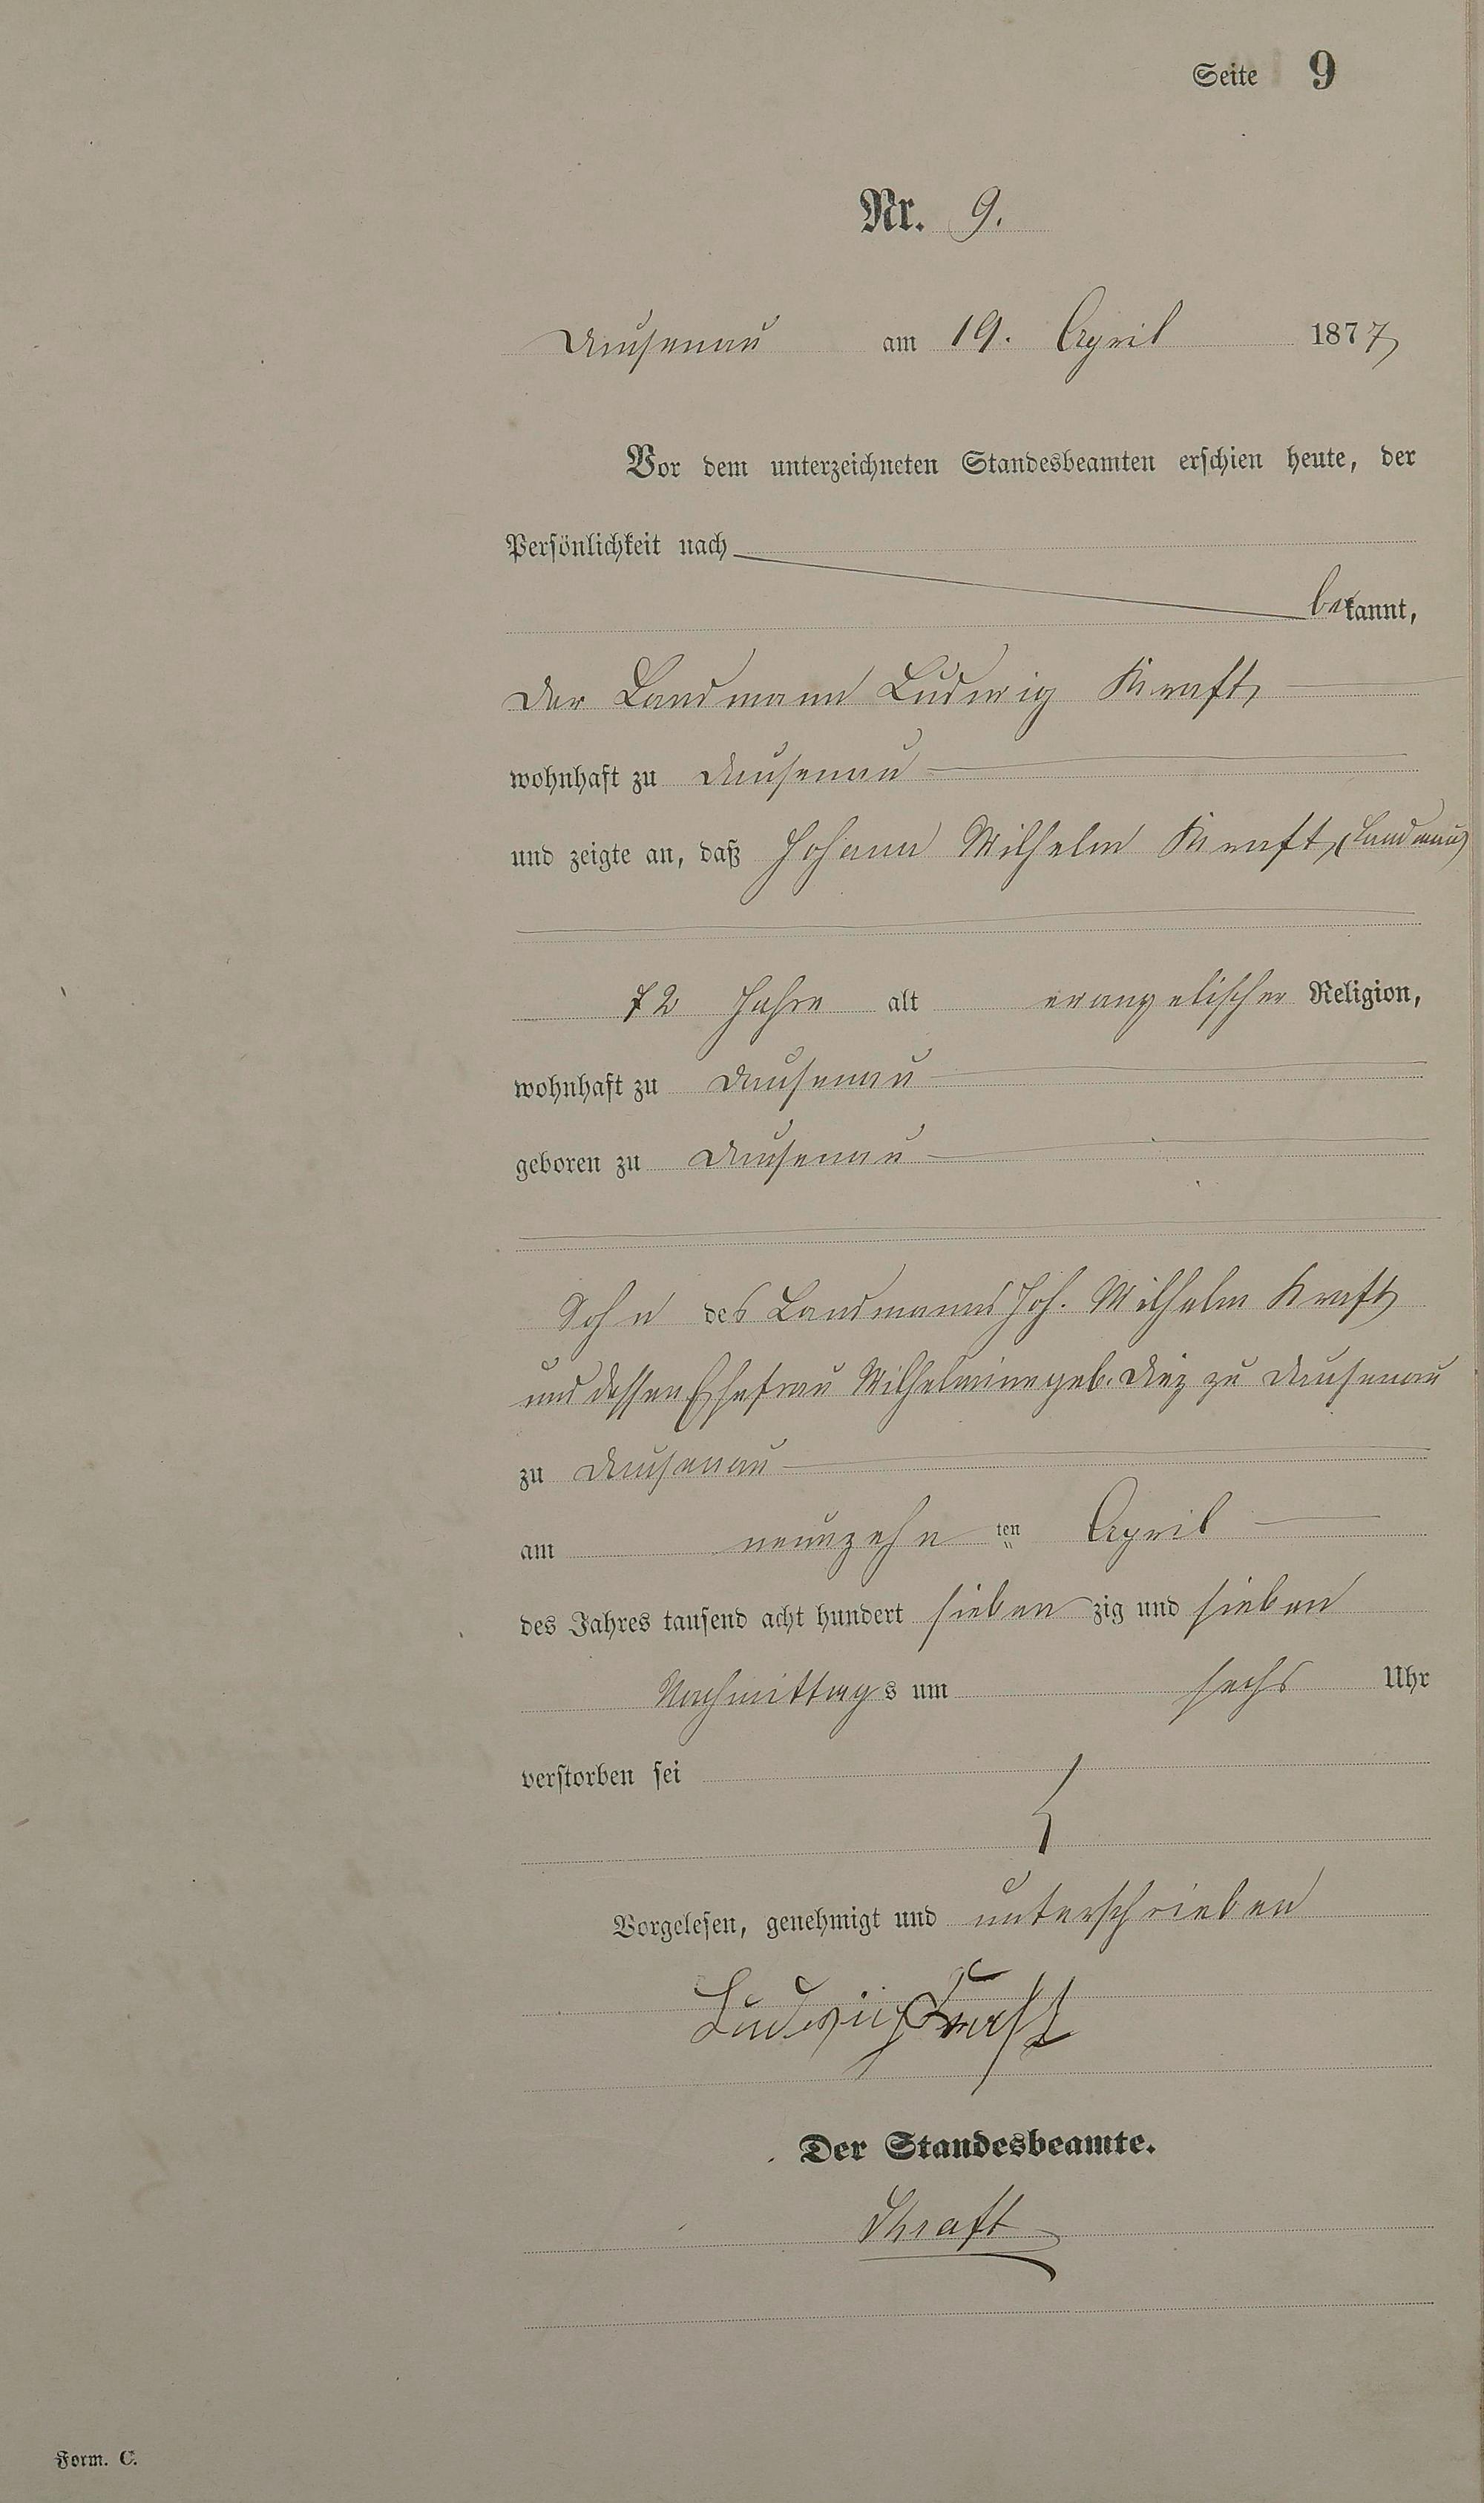 Seite 9
Nr. 9.
Dausenau am 19. April 1877
Vor dem unterzeichneten Standesbeamten erschien heute, der
Persönlichkeit nach
bekannt,
der Landmann Ludwig Kraft
wohnhaft zu Dausenau
und zeigte an, daß Johann Wilhelm Kraft, (Landmann)
72 Jahre alt evangelischer Religion,
wohnhaft zu Dausenau
geboren zu Dausenau
Sohn des Landmanns Joh. Wilhelm Kraft
und dessen Ehefrau Wilhelmine geb. Diez zu Dausenau
zu Dausenau
am neunzehn ten April
des Jahres tausend acht hundert sieben zig und sieben
Nachmittags um sechs Uhr
verstorben sei
Vorgelesen, genehmigt und unterschrieben
Ludwig Kraft
Der Standesbeamte.
Kraft
Form. C.